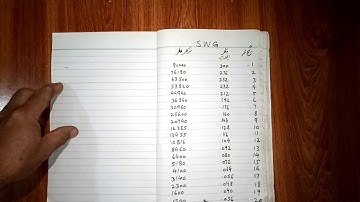 SWG
90000 300 1
76180 276 2
63500 252 3
53820 232 4
44940 212 5
36860 192 6
30980 176 7
25600 160 8
20740 144 9
16385 128 10
13455 116 11
10816 104 12
8460 092 13
6400 080 14
5180 072 15
4100 064 16
3140 056 17
2300 048 18
1600 040 19
1300 036 20